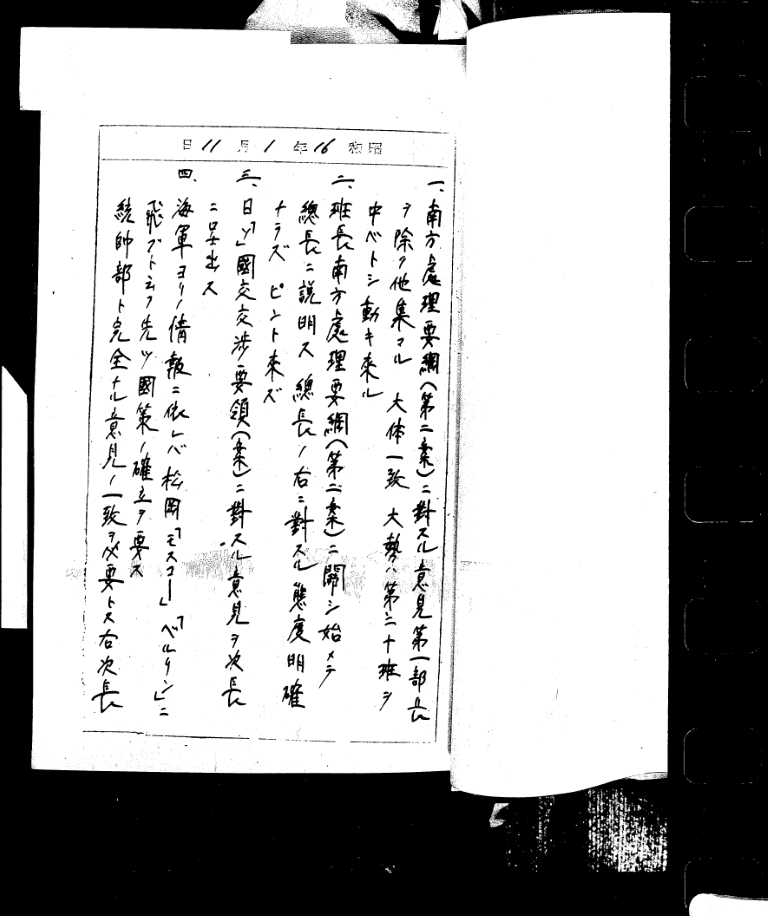 昭和16年1月11日
一、南方處理要綱(第二案)ニ對スル意見第一部長
ヲ除ク他集マル 大体一致 大勢ハ第二十班ヲ
中心トシ動キ来ル
二、班長南方處理要綱(第二案)ニ關シ始メテ
總長ニ説明ス 總長ノ右ニ對スル態度明確
ナラズ ピント来ズ
三、日「ソ」國交交渉要領(案)ニ對スル意見ヲ次長
ニ呈出ス
四、海軍ヨリノ情報ニ依レバ松岡「モスコー」「ベルリン」ニ
飛ブト云フ先ツ國策ノ確立ヲ要ス
統帥部ト完全ナル意見ノ一致ヲ必要トス右次長